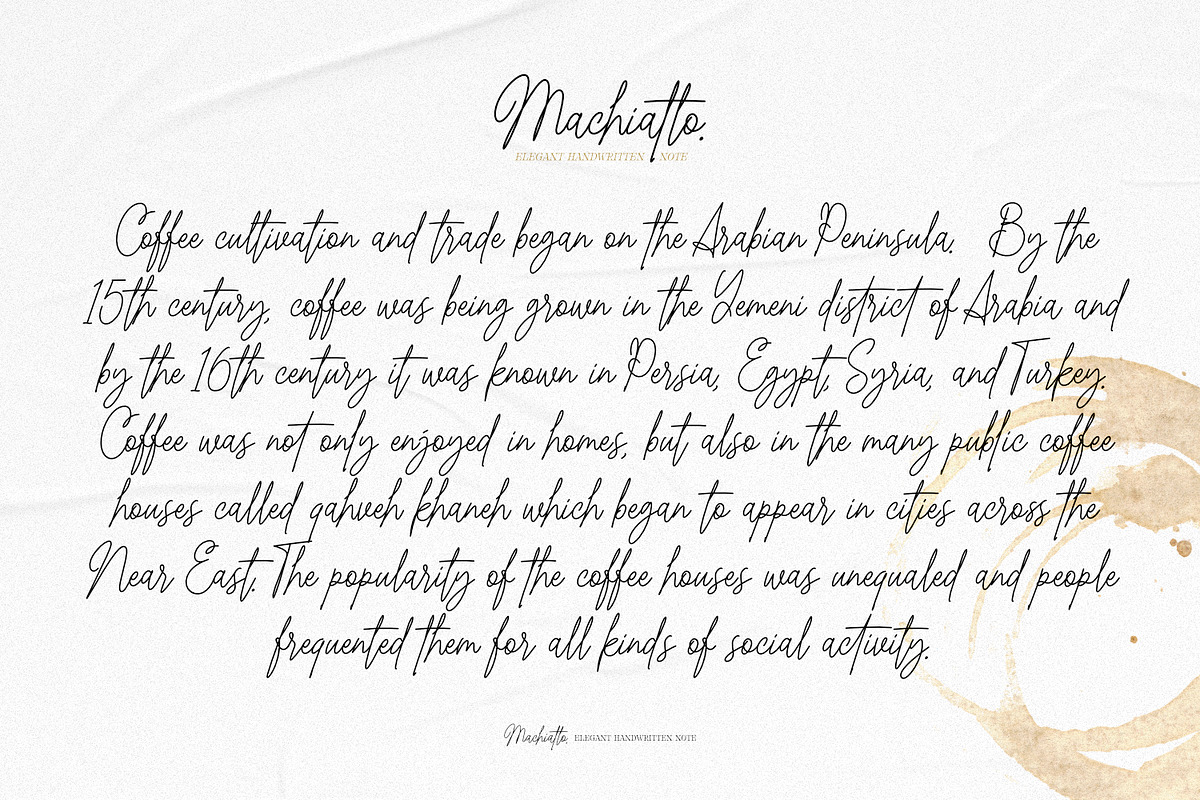 Machiatto.
ELEGANT HANDWRITTEN NOTE
Coffee cultivation and trade began on the Arabian Peninsula. By the
15th century, coffee was being grown in the Yemeni district of Arabia and
by the 16th century it was known in Persia, Egypt, Syria, and Turkey.
Coffee was not only enjoyed in homes, but also in the many public coffee
houses called qahveh khaneh which began to appear in cities across the
Near East. The popularity of the coffee houses was unequaled and people
frequented them for all kinds of social activity.
Machiatto. ELEGANT HANDWRITTEN NOTE